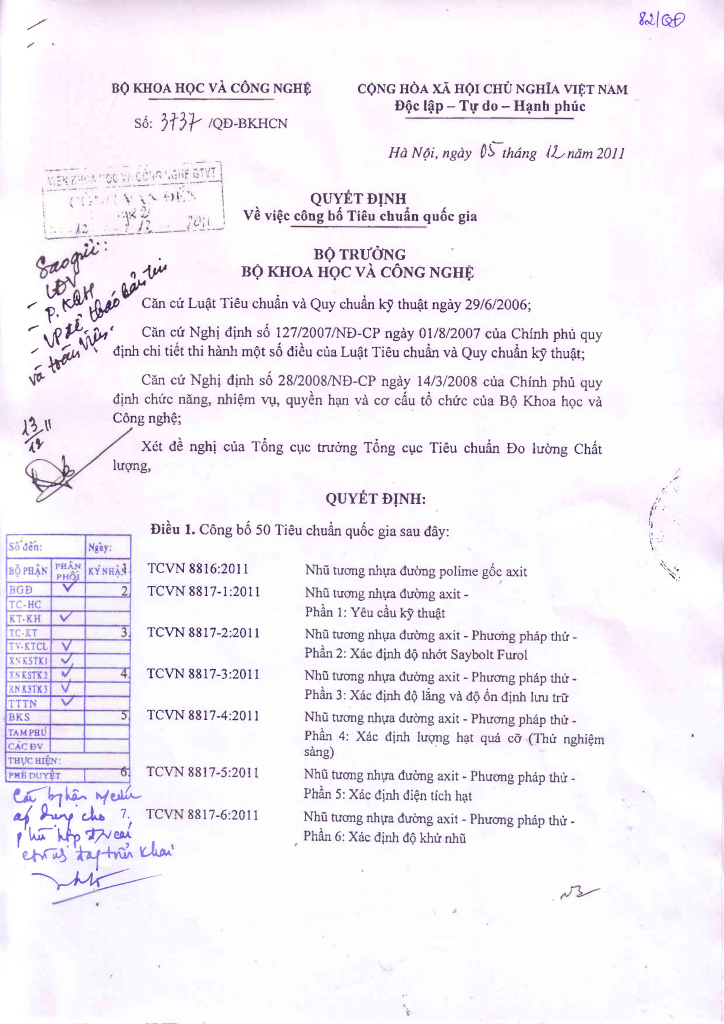 82/QĐ
BỘ KHOA HỌC VÀ CÔNG NGHỆ
CỘNG HÒA XÃ HỘI CHỦ NGHĨA VIỆT NAM
Độc lập – Tự do – Hạnh phúc
Số: 3737 /QĐ-BKHCN
Hà Nội, ngày 05 tháng 12 năm 2011
VIỆN KHOA HỌC VÀ CÔNG NGHỆ GTVT
CÔNG VĂN ĐẾN
QUYẾT ĐỊNH
Về việc công bố Tiêu chuẩn quốc gia
BỘ TRƯỞNG
BỘ KHOA HỌC VÀ CÔNG NGHỆ
Sao gửi:
- P. KQH
và toàn Viện.
13/12
Căn cứ Luật Tiêu chuẩn và Quy chuẩn kỹ thuật ngày 29/6/2006;
Căn cứ Nghị định số 127/2007/NĐ-CP ngày 01/8/2007 của Chính phủ quy
định chi tiết thi hành một số điều của Luật Tiêu chuẩn và Quy chuẩn kỹ thuật;
Căn cứ Nghị định số 28/2008/NĐ-CP ngày 14/3/2008 của Chính phủ quy
định chức năng, nhiệm vụ, quyền hạn và cơ cấu tổ chức của Bộ Khoa học và
Công nghệ;
Xét đề nghị của Tổng cục trưởng Tổng cục Tiêu chuẩn Đo lường Chất
lượng,
QUYẾT ĐỊNH:
Điều 1. Công bố 50 Tiêu chuẩn quốc gia sau đây:
Số đến: Ngày:
BỘ PHẬN PHÂN PHỐI KÝ NHẬN
BGĐ
TC-HC
KT-KH
TC-KT
TV-KTCL
XNKSTK1
XNKSTK2
XNKSTK3
TTTN
BKS
TAM PHÚ
CÁC ĐV
THỰC HIỆN:
PHÊ DUYỆT
1. TCVN 8816:2011 Nhũ tương nhựa đường polime gốc axit
2. TCVN 8817-1:2011 Nhũ tương nhựa đường axit -
Phần 1: Yêu cầu kỹ thuật
3. TCVN 8817-2:2011 Nhũ tương nhựa đường axit - Phương pháp thử -
Phần 2: Xác định độ nhớt Saybolt Furol
4. TCVN 8817-3:2011 Nhũ tương nhựa đường axit - Phương pháp thử -
Phần 3: Xác định độ lắng và độ ổn định lưu trữ
5. TCVN 8817-4:2011 Nhũ tương nhựa đường axit - Phương pháp thử -
Phần 4: Xác định lượng hạt quá cỡ (Thử nghiệm
sàng)
6. TCVN 8817-5:2011 Nhũ tương nhựa đường axit - Phương pháp thử -
Phần 5: Xác định điện tích hạt
7. TCVN 8817-6:2011 Nhũ tương nhựa đường axit - Phương pháp thử -
Phần 6: Xác định độ khử nhũ
áp dụng cho
phù hợp